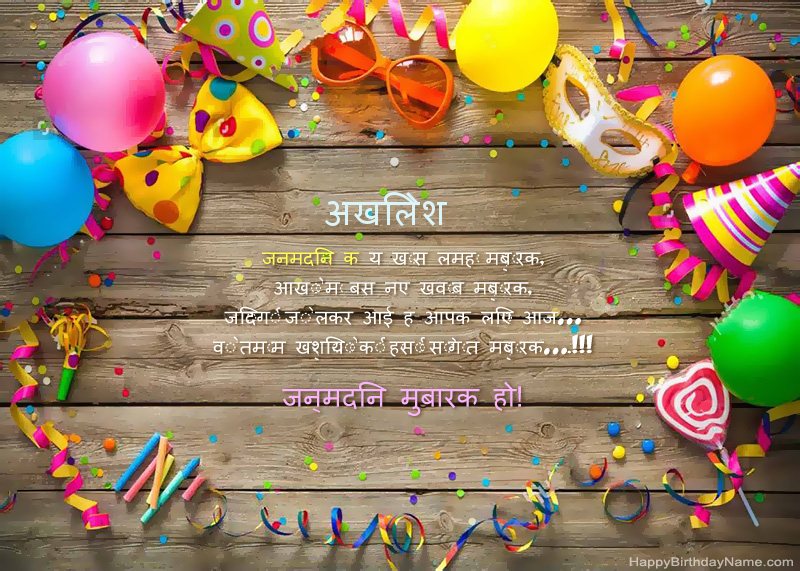 अखिलेश
जन्मदिन के ये खास लम्हें मुबारक,
आंखों में बसे नए ख्वाब मुबारक,
जिंदगी जो लेकर आई है आपके लिए आज...
वो तमाम खुशियों की हंसीं सौगात मुबारक...!!!
जन्मदिन मुबारक हो!
HappyBirthdayName.com